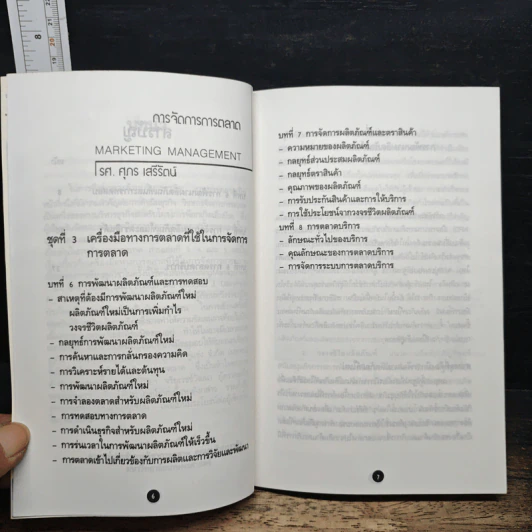 การจัดการการตลาด
MARKETING MANAGEMENT
รศ. ศุภร เสรีรัตน์
ชุดที่ 3 เครื่องมือทางการตลาดที่ใช้ในการจัดการ
การตลาด
บทที่ 6 การพัฒนาผลิตภัณฑ์และการทดสอบ
- สาเหตุที่ต้องมีการพัฒนาผลิตภัณฑ์ใหม่
ผลิตภัณฑ์ใหม่เป็นการเพิ่มกำไร
วงจรชีวิตผลิตภัณฑ์
- กลยุทธ์การพัฒนาผลิตภัณฑ์ใหม่
- การค้นหาและการกลั่นกรองความคิด
- การวิเคราะห์รายได้และต้นทุน
- การพัฒนาผลิตภัณฑ์ใหม่
- การจำลองตลาดสำหรับผลิตภัณฑ์ใหม่
- การทดสอบทางการตลาด
- การดำเนินธุรกิจสำหรับผลิตภัณฑ์ใหม่
- การร่นเวลาในการพัฒนาผลิตภัณฑ์ให้เร็วขึ้น
- การตลาดเข้าไปเกี่ยวข้องกับการผลิตและการวิจัยและพัฒนา
6
บทที่ 7 การจัดการผลิตภัณฑ์และตราสินค้า
- ความหมายของผลิตภัณฑ์
- กลยุทธ์ส่วนประสมผลิตภัณฑ์
- กลยุทธ์ตราสินค้า
- คุณภาพของผลิตภัณฑ์
- การรับประกันสินค้าและการให้บริการ
- การใช้ประโยชน์จากวงจรชีวิตผลิตภัณฑ์
บทที่ 8 การตลาดบริการ
- ลักษณะทั่วไปของบริการ
- คุณลักษณะของการตลาดบริการ
- การจัดการระบบการตลาดบริการ
7
8